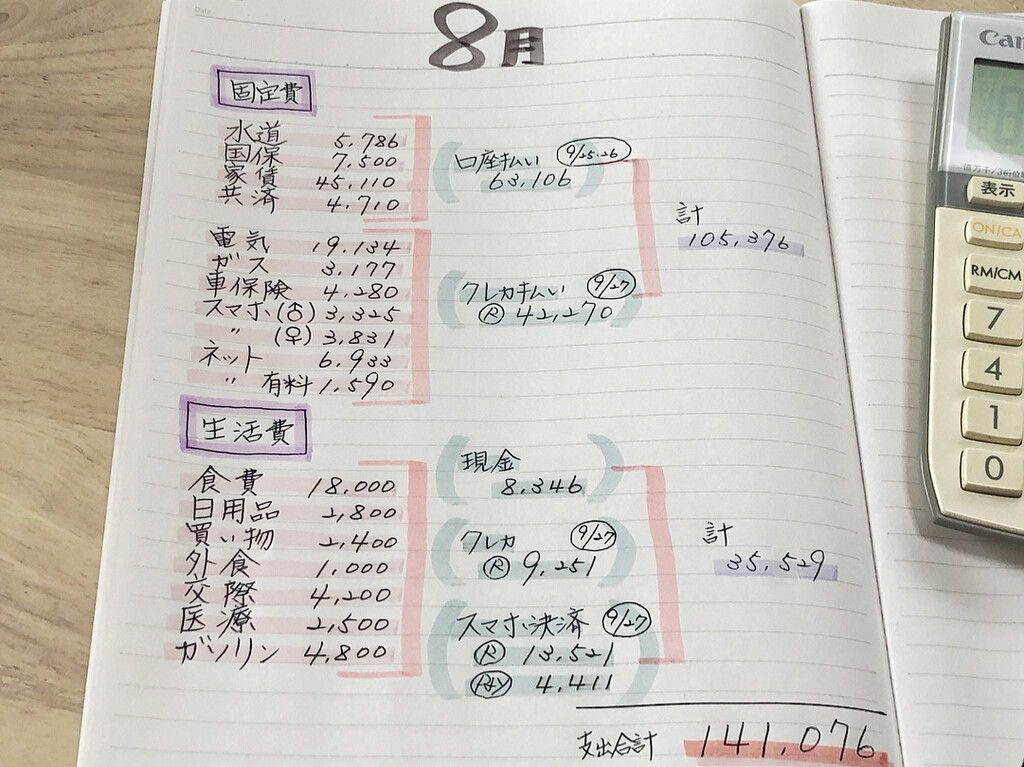 Date
8月
固定費
水道 5,786
国保 7,500
家賃 45,110
共済 4,710
口座払い 9/25.26
63,106
電気 19,134
ガス 3,177
車保険 4,280
スマホ(♂) 3,325
〃 (♀) 3,831
ネット 6,933
〃 有料 1,590
クレカ払い 9/27
R 42,270
計
105,376
生活費
食費 18,000
日用品 2,800
買い物 2,400
外食 1,000
交際 4,200
医療 2,500
ガソリン 4,800
現金
8,346
クレカ 9/27
R 9,251
スマホ決済 9/27
R 13,521
Pay 4,411
計
35,529
支出合計 141,076
Can
表示
ON/CA
RM/CM
7
4
1
0